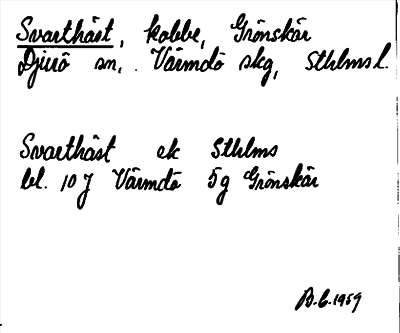 Svarthäst, kobbe, Grönskär
Djurö sn, Värmdö skg, Sthlms l.
Svarthäst ek Sthlms
bl. 10 J Värmdö 5g Grönskär
B.C. 1959